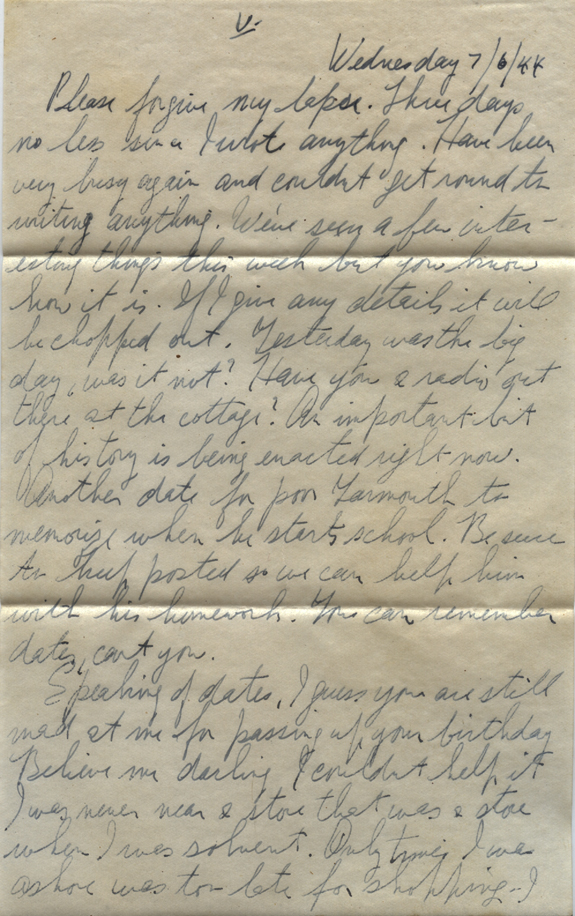 V.
Wednesday 7/6/44
Please forgive my lapse. Three days
no less since I wrote anything. Have been
very busy again and couldn't get round to
writing anything. We've seen a few inter-
esting things this week but you know
how it is. If I give any details it will
be chopped out. Yesterday was the big
day, was it not? Have you a radio out
there at the cottage? An important bit
of history is being enacted right now.
Another date for poor Yarmouth to
memorize when he starts school. Be sure
to keep posted so we can help him
with his homework. You can remember
dates, can't you.
Speaking of dates, I guess you are still
mad at me for passing up your birthday
Believe me darling I couldn't help it
I was never near a store that was a store
when I was solvent. Only time I was
ashore was too late for shopping - I